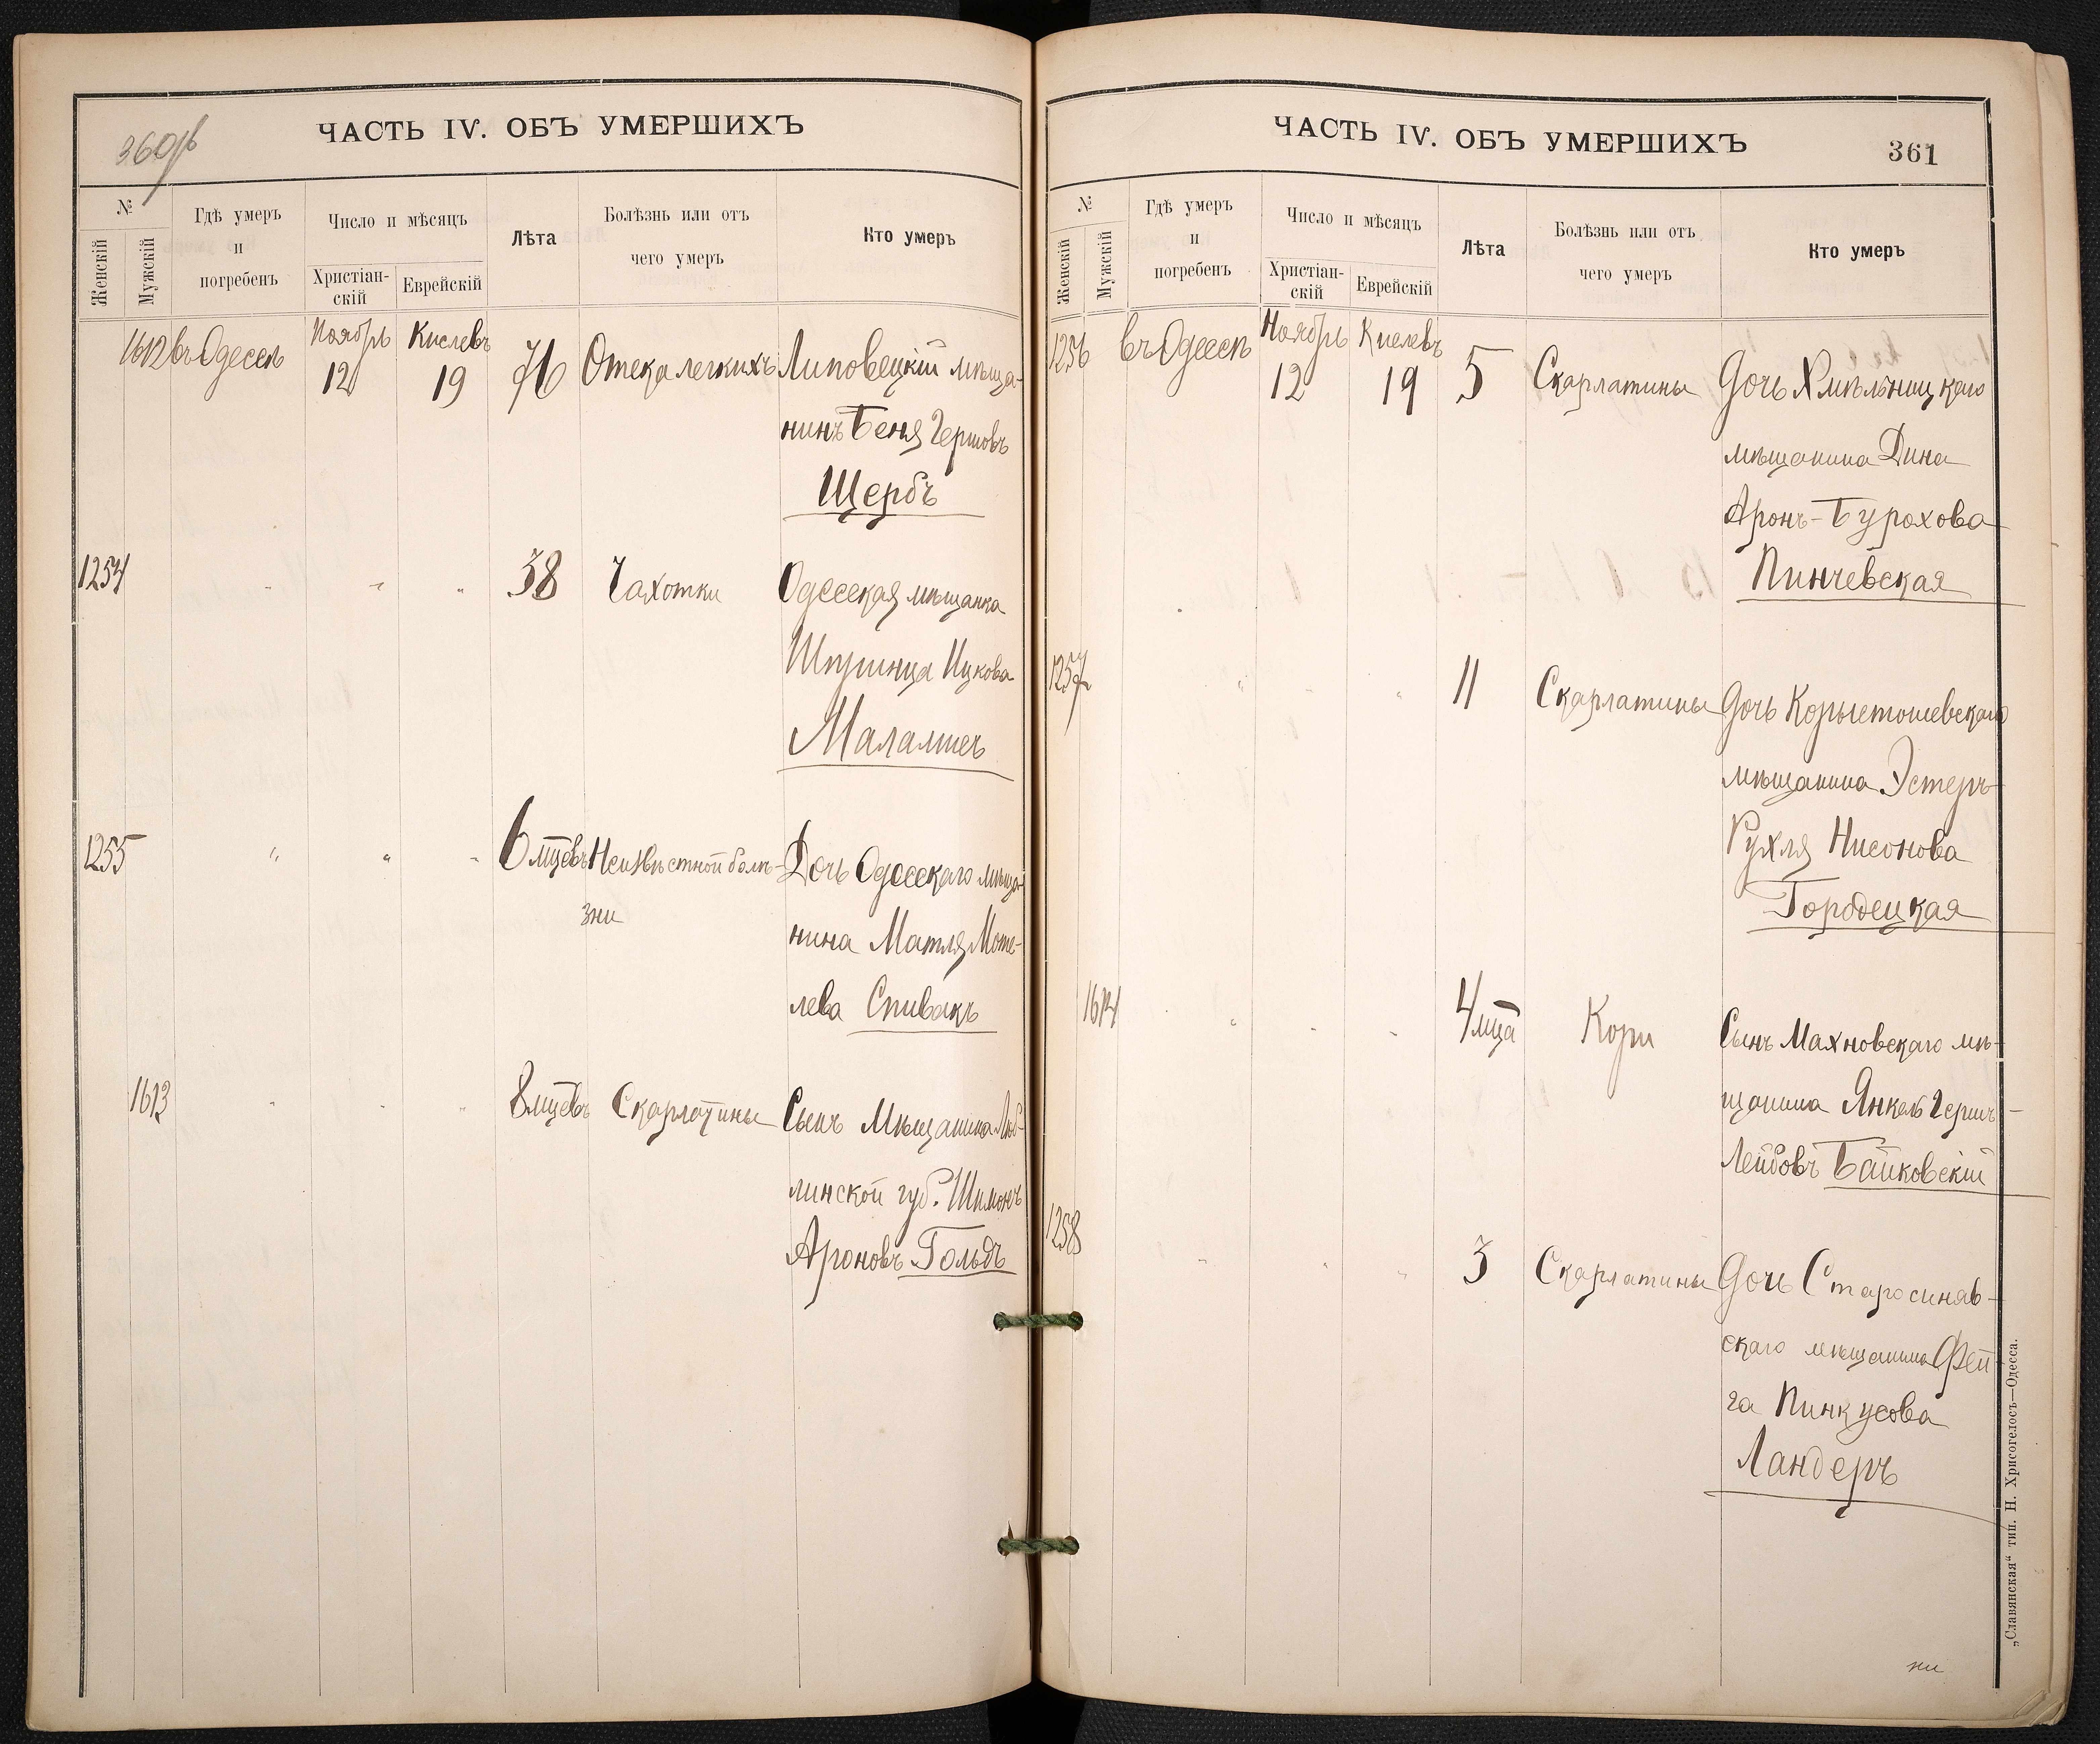 360 об
ЧАСТЬ IV. ОБЪ УМЕРШИХЪ
№
Женскій
Мужскій
Гдѣ умеръ
и
погребенъ
Число и мѣсяцъ
Христіан-
скій
Еврейскій
Лѣта
Болѣзнь или отъ
чего умеръ
Кто умеръ
1612 въ Одессѣ Ноябрь 12 Кислевъ 19 76 Отека легкихъ Липовецкій мѣща-
нинъ Беня Гершовъ
Щербъ
1254 " " " 38 Чахотки Одесская мѣщанка
Шпринца Ицкова
Маламисъ
1255 " " " 6 мцевъ Неизвѣстной болѣ- Дочь Одесскаго мѣща-
зни
нина Матля Моте-
лева Спивакъ
1613 " " " 8 мцевъ Скарлатины Сынъ Мѣщанина Люб-
линской губ. Шимонъ
Ароновъ Гольдъ
ЧАСТЬ IV. ОБЪ УМЕРШИХЪ
361
№
Женскій
Мужскій
Гдѣ умеръ
и
погребенъ
Число и мѣсяцъ
Христіан-
скій
Еврейскій
Лѣта
Болѣзнь или отъ
чего умеръ
Кто умеръ
1256 въ Одессѣ Ноябрь 12 Кислевъ 19 5 Скарлатины Дочь Хмѣльницкаго
мѣщанина Дина
Аронъ-Бурохова
Пинчевская
1257 " " " 11 Скарлатины Дочь Коростышевскаго
мѣщанина Эстеръ
Рухля Нисонова
Городецкая
1614 " " " 4 мца Кори Сынъ Махновскаго мѣ-
щанина Янкель Гершъ-
Лейбовъ Байковскій
1258 " " " 3 Скарлатины Дочь Старосиняв-
скаго мѣщанина Фей-
га Пинкусова
Ландеръ
„Славянская“ тип. Н. Хрисогелосъ—Одесса.